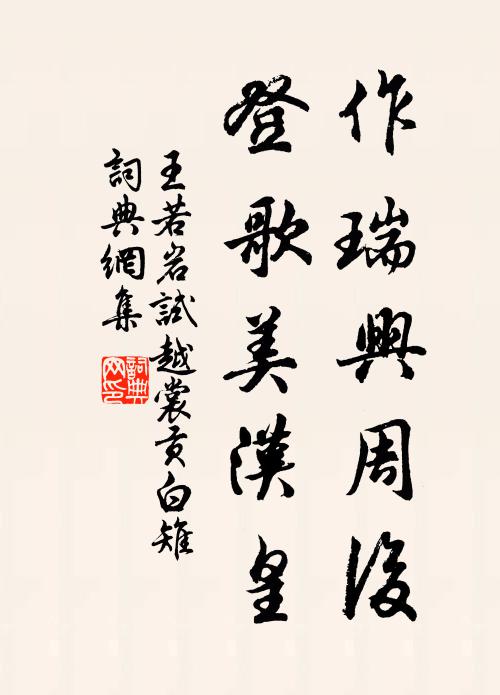 作瑞興周後
登歌美漢皇
王若岩試越裳貢白雉
詞典網集
詞典网印